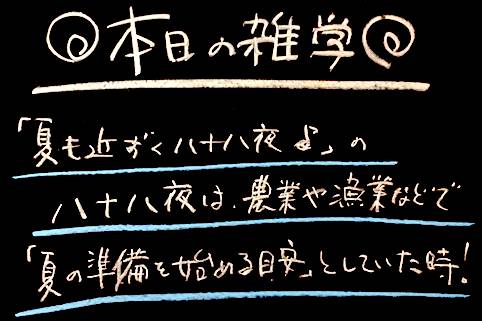 本日の雑学
「夏も近ずく八十八夜♪」の
八十八夜は、農業や漁業などで
「夏の準備を始める目安」としていた時！